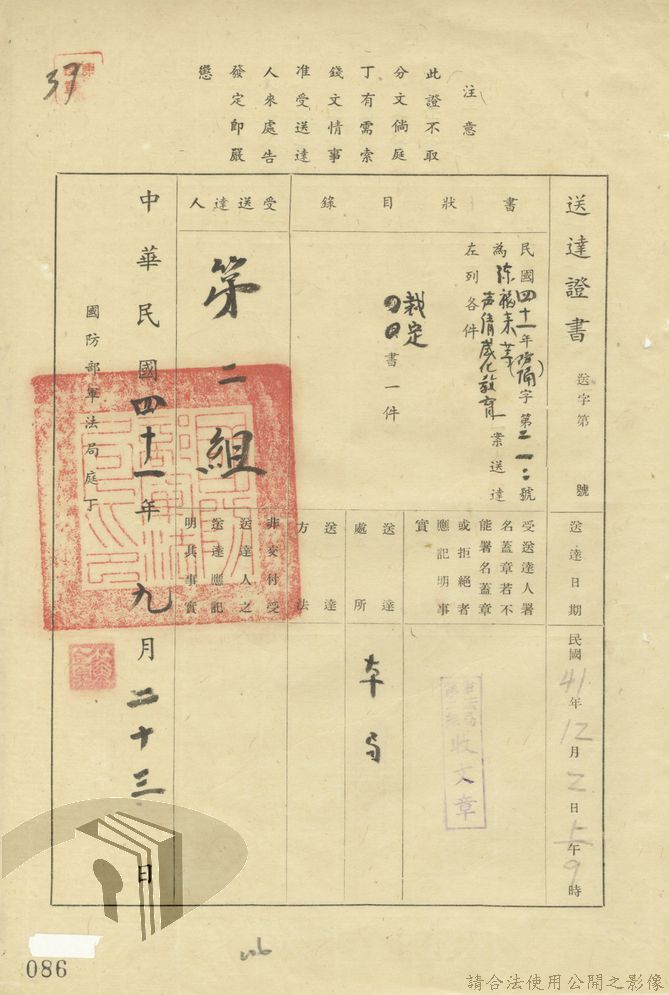 注意
此證不取
分文倘庭
丁有需索
錢文情事
准受送達
人來處告
發定即嚴
懲
送達證書
送字第 號
送達日期
民國41年12月2日上午9時
書狀目錄
民國四十一年防隅字第二一二號
為徐福來等(
声請感化教育一案送達
左列各件
裁定
書一件
受送達人署
名蓋章若不
能署名蓋章
或拒絕者
應記明事
實
收文章
送達處所
本局
送達方法
受送達人
第二組
非交付受
送達人之
送達應記
明其事實
中華民國四十一年九月二十三日
國防部軍法局庭丁
37
086
請合法使用公開之影像